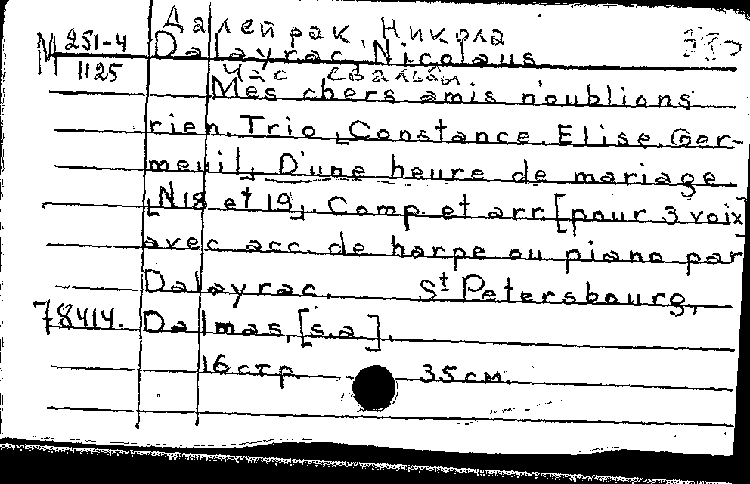 Далейрак, Никола
М 251-4 Dalayrac, Nicolaus
1125 Час свадьбы.
Mes chers amis n'oublions
rien. Trio "Constance. Elise. Ger-
meuil". D'une heure de mariage.
"N18 et 19". Comp. et arr. [pour 3 voix]
avec acc. de harpe ou piano par
Dalayrac. St Petersbourg,
78414. Dalmas, [s.a.].
16 стр. 35 см.